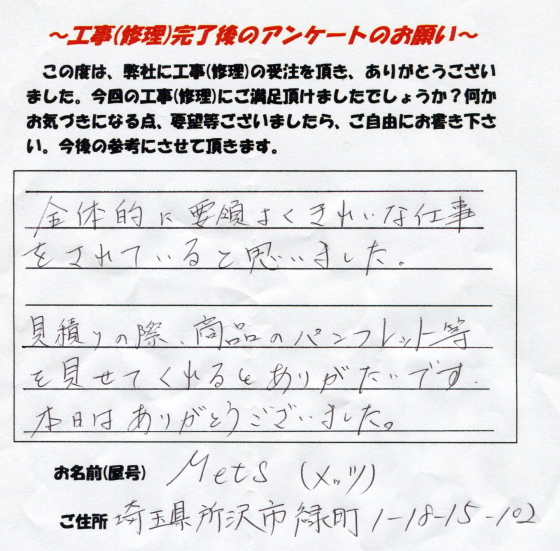 ～工事(修理)完了後のアンケートのお願い～
この度は、弊社に工事(修理)の受注を頂き、ありがとうござい
ました。今回の工事(修理)にご満足頂けましたでしょうか？何か
お気づきになる点、要望等ございましたら、ご自由にお書き下さ
い。今後の参考にさせて頂きます。
全体的に要領よくきれいな仕事
をされていると思いました。
見積りの際、商品のパンフレット等
を見せてくれるとありがたいです.
本日はありがとうございました。
お名前(屋号) Mets (メッツ)
ご住所 埼玉県所沢市緑町1-18-15-102